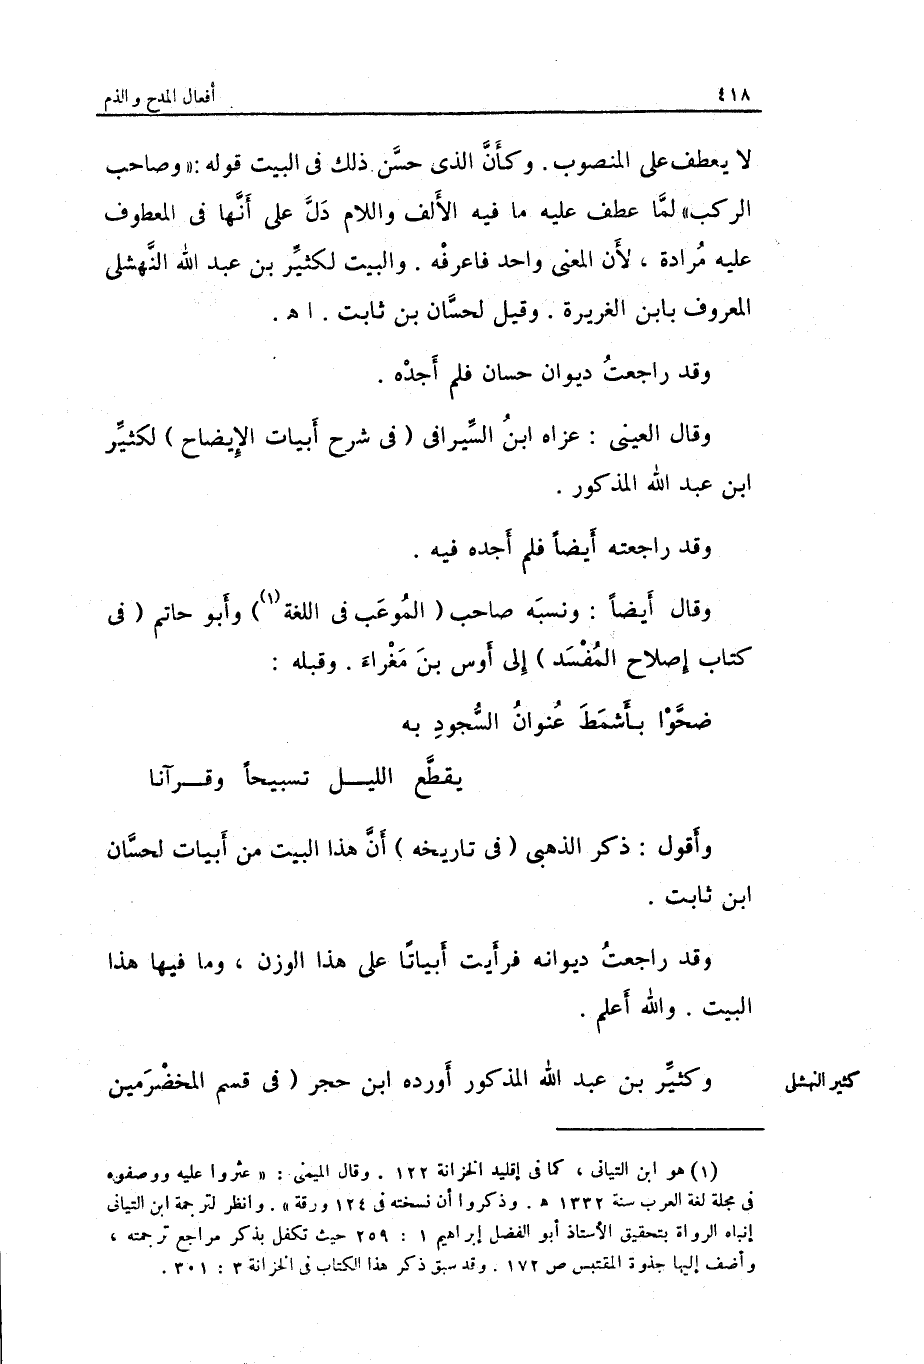 ٤١٨
أفعال المدح والذم
لا يعطف على المنصوب . وكأَنَّ الذى حسَّن ذلك فى البيت قوله :« وصاحب
الركب» لمَّا عطف عليه ما فيه الأَلف واللام دَلَّ على أَنَّها فى المعطوف
عليه مُرادة ، لأَن المعنى واحد فاعرفْه . والبيت لكثيِّر بن عبد الله النَّهشلى
المعروف بابن الغريرة . وقيل لحسَّان بن ثابت . ا ه .
وقد راجعتُ ديوان حسان فلم أَجدْه .
وقال العينى : عزاه ابنُ السِّيرافى ( فى شرح أَبيات الإِيضاح ) لكثيِّر
ابن عبد الله المذكور .
وقد راجعته أَيضاً فلم أَجده فيه .
وقال أَيضاً : ونسبَه صاحب ( المُوعَب فى اللغة(١)) وأَبو حاتم ( فى
كتاب إِصلاح المُفْسَد ) إِلى أَوس بنَ مَغْراءَ . وقبله :
ضحَّوْا بأَشمَطَ عُنوانُ السُّجودِ به
يقطَّع الليل تسبيحاً وقرآنا
وأَقول : ذكر الذهبى ( فى تاريخه ) أَنَّ هذا البيت من أَبيات لحسَّان
ابن ثابت .
وقد راجعتُ ديوانه فرأَيت أَبياتًا على هذا الوزن ، وما فيها هذا
البيت . والله أَعلم .
وكثيِّر بن عبد الله المذكور أَورده ابن حجر ( فى قسم المخضْرَمين
كثير النهشلى
(١) هو ابن التيانى ، كما فى إقليد الخزانة ١٢٢ . وقال الميمنى : « عثروا عليه ووصفوه
فى مجلة لغة العرب سنة ١٣٣٢ ه . وذكروا أن نسخته فى ١٢٤ ورقة » . وانظر لترجمة ابن التيانى
إنباه الرواة بتحقيق الأستاذ أبو الفضل إبراهيم ١ : ٢٥٩ حيث تكفل بذكر مراجع ترجمته ،
وأضف إليها جذوة المقتبس ص ١٧٢ . وقد سبق ذكر هذا الكتاب فى الخزانة ٣ : ٣٠١ .